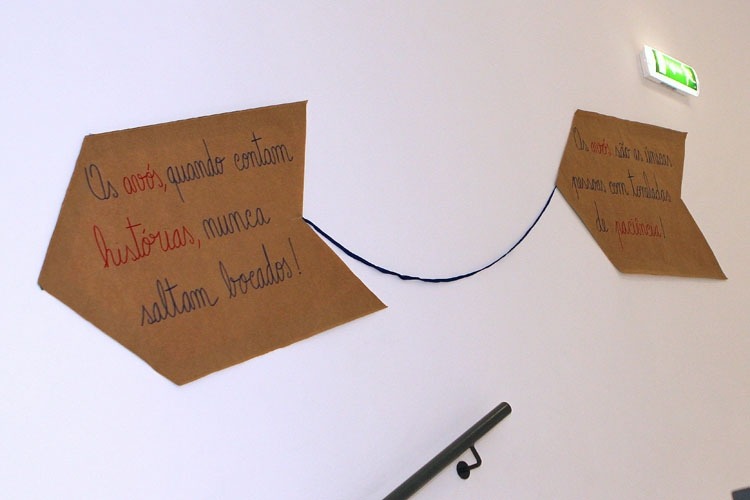 Os avós, quando contam
histórias, nunca
saltam bocados!
Os avós são as únicas
pessoas com toneladas
de paciência!